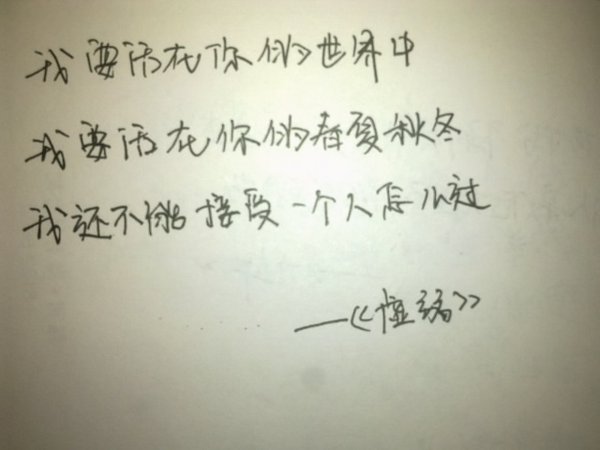 我要活在你的世界中
我要活在你的春夏秋冬
我还不能接受一个人怎么过
——《慌编》